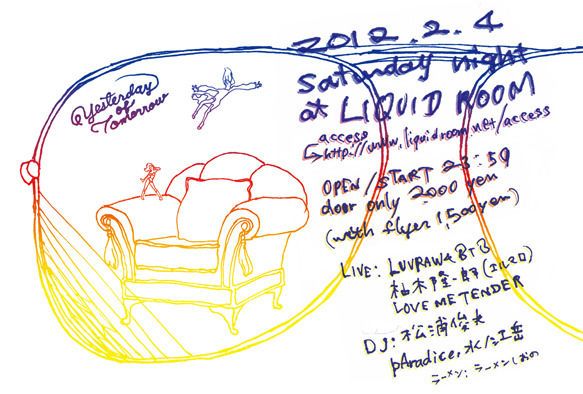 Yesterday
of
Tomorrow
2012.2.4
Saturday night
at LIQUID ROOM
access
http://www.liquidroom.net/access
OPEN/START 23:59
door only 2000 yen
(with flyer 1,500 yen)
LIVE: LUVRAW & BTB
柚木隆一郎(エルマロ)
LOVE ME TENDER
DJ: 松浦俊夫
pAradice, 水/江岳
ラーメン: ラーメンしおの